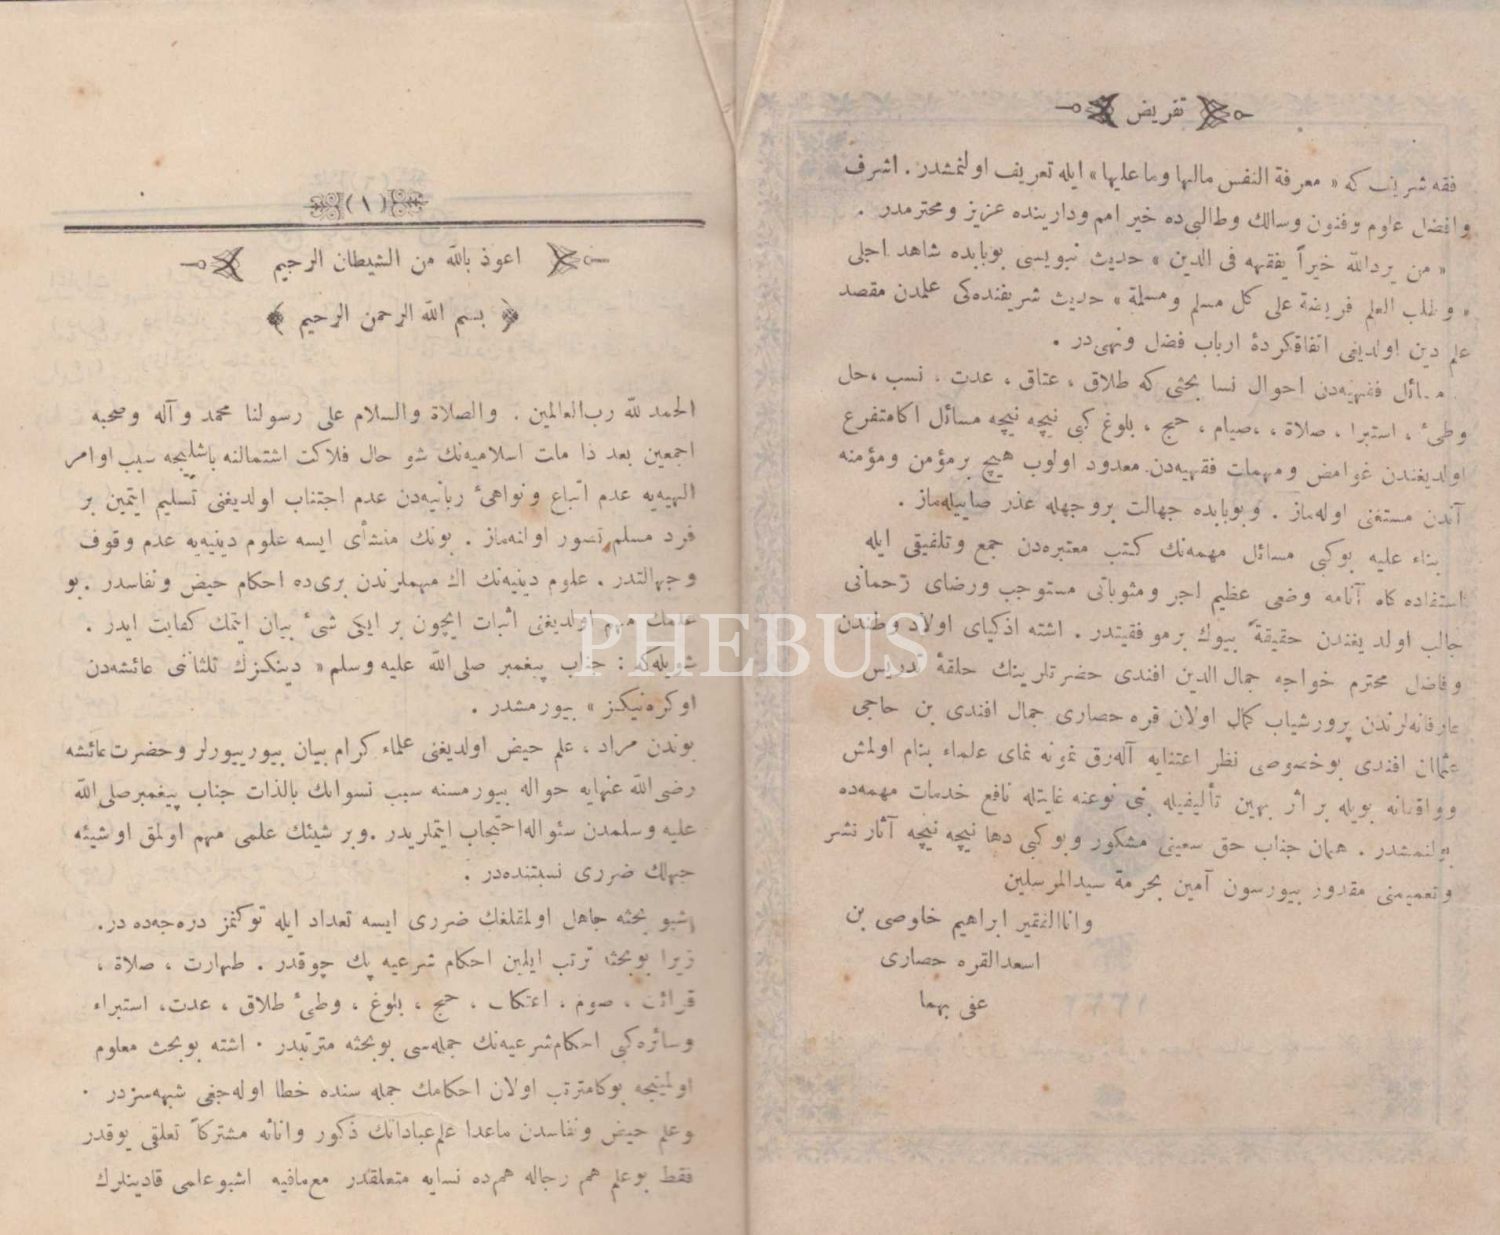 تقریض
فقه شریف كه « معرفة النفس مالها وما علیها » ایله تعریف اولنمشدر . اشرف
وافضل علوم وفنون وسالك وطالبی ده خیر امم ودارینده عزیز ومحترمدر .
« من یردالله خیراً یفقهه فی الدین » حدیث نبویسی بوبابده شاهد اجلی
« و طلب العلم فریضة علی كل مسلم ومسلمة » حدیث شریفنده كی علمدن مقصد
علم دین اولدیغی اتفاقكردهٔ ارباب فضل ونهی در .
مسائل فقهیه دن احوال نسا بحثی كه طلاق ، عتاق ، عدت ، نسب ، حل
وطیٔ ، استبرا ، صلاة ، صیام ، حج ، بلوغ كبی نیچه نیچه مسائل اكامتفرع
اولدیغندن غوامض ومهمات فقهیه دن معدود اولوب هیچ برمؤمن ومؤمنه
آندن مستغنی اوله ماز . وبوبابده جهالت بروجهله عذر صاییله ماز .
بناء علیه بوكبی مسائل مهمه نك كتب معتبره دن جمع وتلفیقی ایله
استفاده كاه آنامه وضعی عظیم اجر ومثوباتی مستوجب ورضای رحمانی
جالب اولدیغندن حقیقةً بیوك برموفقیتدر . اشته اذكیای اولاد وطندن
وفاضل محترم خواجه جمال الدین افندی حضرتلرینك حلقهٔ تدریس
عارفانه لرندن پرورشیاب كمال اولان قره حصاری جمال افندی بن حاجی
عثمان افندی بوخصوصی نظر اعتنایه آله رق نمونه نمای علماء بنام اولمش
وواقفانه بویله بر اثر بهین تألیفیله بنی نوعنه غایتله نافع خدمات مهمه ده
بولنمشدر . همان جناب حق سعینی مشكور وبوكبی دها نیچه نیچه آثار نشر
وتعمیمنی مقدور بیورسون آمین بحرمة سیدالمرسلین
وانا الفقیر ابراهیم خلوصی بن
اسعدالقره حصاری
عفی بهما
(١)
اعوذ بالله من الشیطان الرجیم
بسم الله الرحمن الرحیم
الحمد لله رب العالمین . والصلاة والسلام علی رسولنا محمد وآله وصحبه
اجمعین بعد ذا ملت اسلامیه نك شو حال فلاكت اشتمالنه باشلیجه سبب اوامر
الهیه یه عدم اتباع ونواهیٔ ربانیه دن عدم اجتناب اولدیغنی تسلیم ایتمین بر
فرد مسلم تصور اولنه ماز . بونك منشأی ایسه علوم دینیه یه عدم وقوف
وجهالتدر . علوم دینیه نك اك مهملرندن بری ده احكام حیض ونفاسدر . بو
علمك مهم اولدیغنی اثبات ایچون بر ایكی شیٔ بیان ایتمك كفایت ایدر .
شویله كه : جناب پیغمبر صلی الله علیه وسلم « دینكزك ثلثاننی عائشه دن
اوكره نیكز » بیورمشدر .
بوندن مراد ، علم حیض اولدیغنی علماء كرام بیان بیوریورلر وحضرت عائشه
رضی الله عنهایه حواله بیورمسنه سبب نسوانك بالذات جناب پیغمبر صلی الله
علیه وسلمدن سئواله احتجاب ایتملریدر . وبر شیئك علمی مهم اولمق اوشیئه
جهلك ضرری نسبتنده در .
اشبو بحثه جاهل اولمقلغك ضرری ایسه تعداد ایله توكنمز دره جه ده در .
زیرا بوبحثه ترتب ایلین احكام شرعیه پك چوقدر . طهارت ، صلاة ،
قرائت ، صوم ، اعتكاف ، حج ، بلوغ ، وطیٔ طلاق ، عدت ، استبراء
وسائره كبی احكام شرعیه نك جمله سی بوبحثه مترتبدر . اشته بوبحث معلوم
اولمینجه بوكامترتب اولان احكامك جمله سنده خطا اوله جغی شبهه سزدر .
وعلم حیض ونفاسدن ماعدا علم عباداتك ذكور واناثه مشتركاً تعلقی یوقدر
فقط بوعلم هم رجاله هم ده نسایه متعلقدر مع مافیه اشبو علمی قادینلرك
PHEBUS